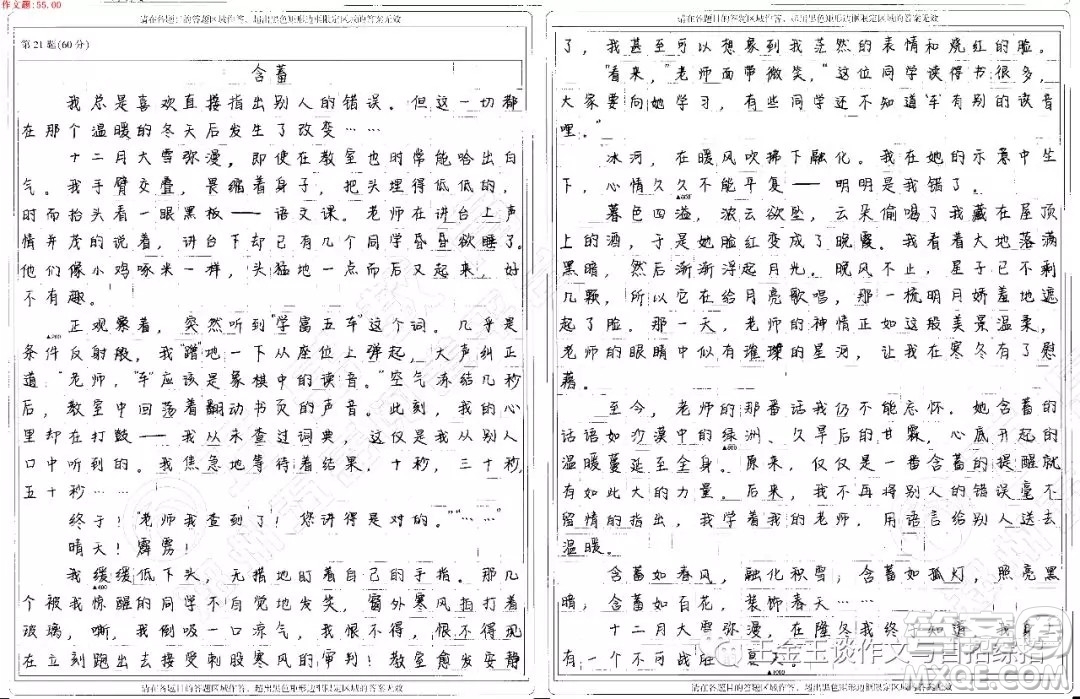 作文题:55.00
请在各题目的答题区域作答，超出黑色矩形边框限定区域的答案无效
第21题(60分)
含蓄
我总是喜欢直接指出别人的错误。但这一切都
在那个温暖的冬天后发生了改变……
十二月大雪弥漫，即使在教室也时常能哈出白
气。我手臂交叠，畏缩着身子，把头埋得低低的，
时而抬头看一眼黑板——语文课。老师在讲台上声
情并茂的说着，讲台下却已有几个同学昏昏欲睡了。
他们像小鸡啄米一样，头猛地一点而后又起来，好
不有趣。
正观察着，突然听到“学富五车”这个词。几乎是
条件反射般，我“蹭”地一下从座位上弹起，大声纠正
道：“老师，‘车’应该是象棋中的读音。”空气冻结几秒
后，教室中回荡着翻动书页的声音。此刻，我的心
里却在打鼓——我从未查过词典，这仅是我从别人
口中听到的。我焦急地等待着结果，十秒，三十秒，
五十秒……
终于！“老师我查到了！您讲得是对的。”“……”
晴天！霹雳！
我缓缓低下头，无措地盯着自己的手指。那几
个被我惊醒的同学不自觉地发笑，窗外寒风拍打着
玻璃，嘶，我倒吸一口凉气，我恨不得，恨不得现
在立刻跑出去接受刺股寒风的审判！教室愈发安静
请在各题目的答题区域作答，超出黑色矩形边框限定区域的答案无效
请在各题目的答题区域作答，超出黑色矩形边框限定区域的答案无效
了，我甚至可以想象到我茫然的表情和烧红的脸。
“看来，”老师面带微笑，“这位同学读得书很多，
大家要向她学习，有些同学还不知道‘车’有别的读音
哩。”
冰河，在暖风吹拂下融化。我在她的示意中坐
下，心情久久不能平复——明明是我错了。
暮色四溢，浓云欲坠，云朵偷喝了我藏在屋顶
上的酒，于是她脸红变成了晚霞。我看着大地落满
黑暗，然后渐渐浮起月光。晚风不止，星子已不剩
几颗，所以它在给月亮歌唱，那一梳明月娇羞地遮
起了脸。那一天，老师的神情正如这般美景温柔，
老师的眼睛中似有璀璨的星河，让我在寒冬有了慰
藉。
至今，老师的那番话我仍不能忘怀。她含蓄的
话语如沙漠中的绿洲、久旱后的甘霖，心底升起的
温暖蔓延至全身。原来，仅仅是一番含蓄的提醒就
有如此大的力量。后来，我不再将别人的错误毫不
留情的指出，我学着我的老师，用语言给别人送去
温暖。
含蓄如春风，融化积雪；含蓄如孤灯，照亮黑
暗，含蓄如百花，装饰春天……
十二月大雪弥漫，在隆冬我终于知道，我身
有一个不可战胜
王金王谈作文与自招综招
请在各题目的答题区域作答，超出黑色矩形边框限定区域的答案无效